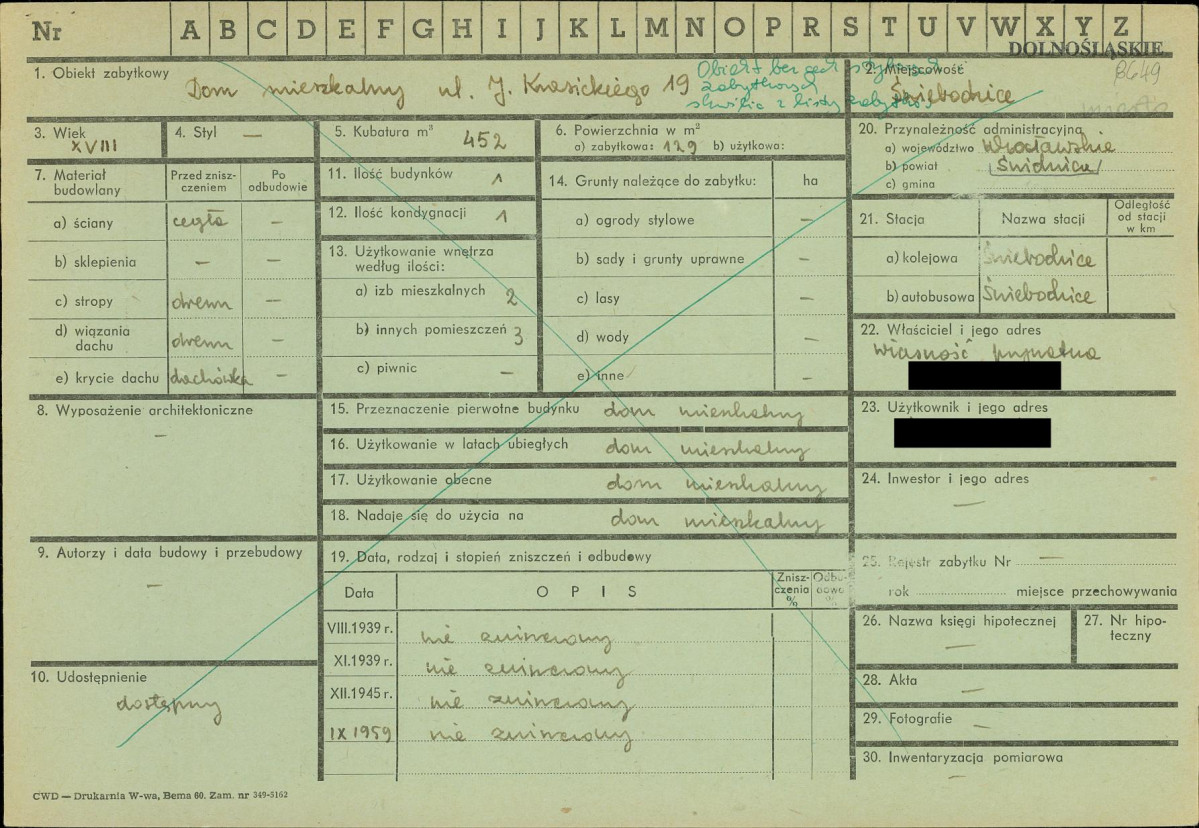 Nr A B C D E F G H I J K L M N O P R S T U V W X Y Z
DOLNOŚLĄSKIE
1. Obiekt zabytkowy
Dom mieszkalny ul. J. Krasickiego 19
Obiekt bez cech stylowych
zabytkowych
z listy zabytków
2. Miejscowość
Świebodnice
8649
miasto
3. Wiek
XVIII
4. Styl —
5. Kubatura m³
452
6. Powierzchnia w m²
a) zabytkowa: 129 b) użytkowa:
20. Przynależność administracyjna
a) województwo Wrocławskie
b) powiat Świdnica
c) gmina
7. Materiał budowlany
Przed zniszczeniem
Po odbudowie
a) ściany cegła —
b) sklepienia — —
c) stropy drewn —
d) wiązania dachu drewn —
e) krycie dachu dachówka —
11. Ilość budynków 1
12. Ilość kondygnacji 1
13. Użytkowanie wnętrza
według ilości:
a) izb mieszkalnych 2
b) innych pomieszczeń 3
c) piwnic —
14. Grunty należące do zabytku: ha
a) ogrody stylowe —
b) sady i grunty uprawne —
c) lasy —
d) wody —
e) inne —
21. Stacja Nazwa stacji Odległość od stacji w km
a) kolejowa Świebodnice
b) autobusowa Świebodnice
22. Właściciel i jego adres
własność prywatna
8. Wyposażenie architektoniczne
—
15. Przeznaczenie pierwotne budynku dom mieszkalny
16. Użytkowanie w latach ubiegłych dom mieszkalny
17. Użytkowanie obecne dom mieszkalny
18. Nadaje się do użycia na dom mieszkalny
23. Użytkownik i jego adres
24. Inwestor i jego adres
—
9. Autorzy i data budowy i przebudowy
—
19. Data, rodzaj i stopień zniszczeń i odbudowy
Data OPIS Zniszczenia % Odbudowa %
VIII.1939 r. nie zniszczony
XI.1939 r. nie zniszczony
XII.1945 r. nie zniszczony
IX 1959 nie zniszczony
25. Rejestr zabytku Nr —
rok miejsce przechowywania
26. Nazwa księgi hipotecznej
—
27. Nr hipoteczny
10. Udostępnienie
dostępny
28. Akta
—
29. Fotografie —
30. Inwentaryzacja pomiarowa
—
CWD — Drukarnia W-wa, Bema 60. Zam. nr 349-5162